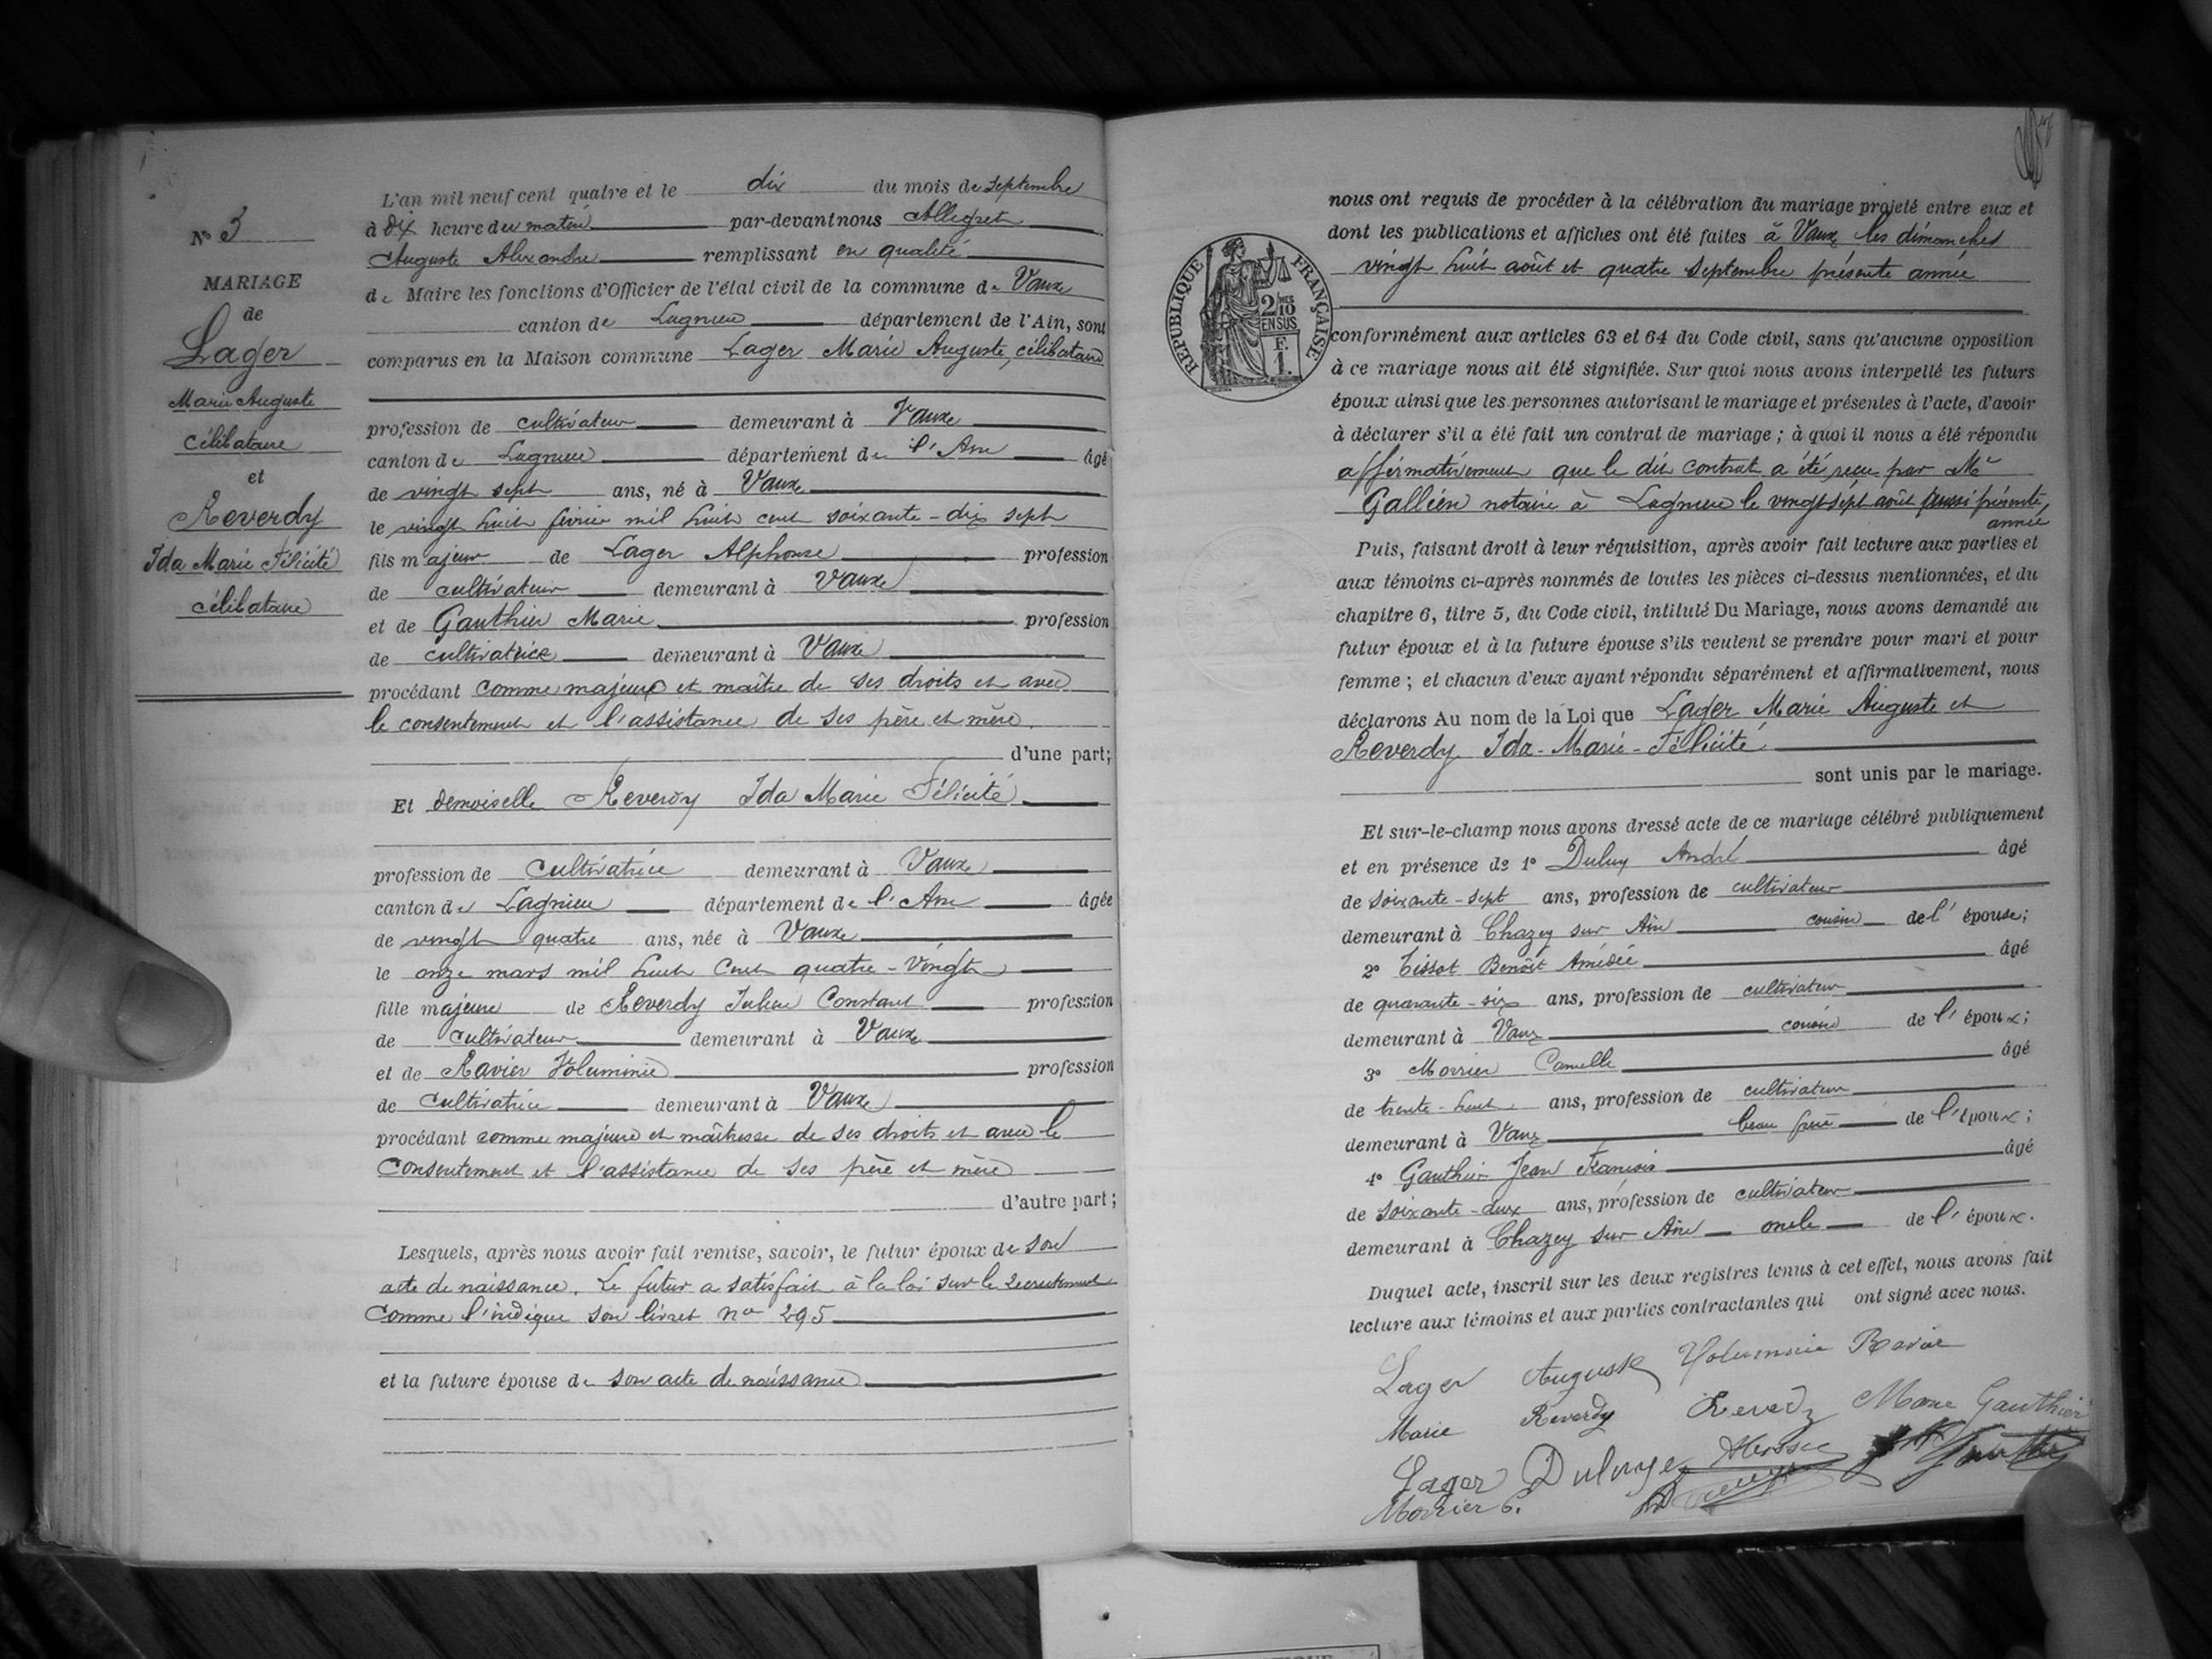 N° 3
MARIAGE
de
Lager
Marie Auguste
célibataire
et
Reverdy
Ida Marie Félicité
célibataire
L'an mil neuf cent quatre et le dix du mois de septembre
à dix heure du matin par-devant nous Allegret
Auguste Alexandre remplissant en qualité
de Maire les fonctions d'Officier de l'état civil de la commune de Vaux
canton de Lagnieu département de l'Ain, sont
comparus en la Maison commune Lager Marie Auguste, célibataire
profession de cultivateur demeurant à Vaux
canton de Lagnieu département de l'Ain âgé
de vingt sept ans, né à Vaux
le vingt huit février mil huit cent soixante-dix sept
fils majeur de Lager Alphonse profession
de cultivateur demeurant à Vaux
et de Gauthier Marie profession
de cultivatrice demeurant à Vaux
procédant comme majeur et maître de ses droits et avec
le consentement et l'assistance de ses père et mère.
d'une part;
Et demoiselle Reverdy Ida Marie Félicité
profession de Cultivatrice demeurant à Vaux
canton de Lagnieu département de l'Ain âgée
de vingt quatre ans, née à Vaux
le onze mars mil huit cent quatre-vingt
fille majeure de Reverdy Julien Constant profession
de cultivateur demeurant à Vaux
et de Ravier Voluminie profession
de Cultivatrice demeurant à Vaux
procédant comme majeure et maîtresse de ses droits et avec le
consentement et l'assistance de ses père et mère
d'autre part;
Lesquels, après nous avoir fait remise, savoir, le futur époux de son
acte de naissance. Le futur a satisfait à la loi sur le recrutement
comme l'indique son livret n° 295
et la future épouse de son acte de naissance
RÉPUBLIQUE FRANÇAISE
2/10MES
EN SUS
F.
1.
nous ont requis de procéder à la célébration du mariage projeté entre eux et
dont les publications et affiches ont été faites à Vaux les dimanches
vingt huit août et quatre septembre présente année
conformément aux articles 63 et 64 du Code civil, sans qu'aucune opposition
à ce mariage nous ait été signifiée. Sur quoi nous avons interpellé les futurs
époux ainsi que les personnes autorisant le mariage et présentes à l'acte, d'avoir
à déclarer s'il a été fait un contrat de mariage ; à quoi il nous a été répondu
affirmativement que le dit contrat a été reçu par Me
Gallien notaire à Lagnieu le vingt sept août aussi présente
année
Puis, faisant droit à leur réquisition, après avoir fait lecture aux parties et
aux témoins ci-après nommés de toutes les pièces ci-dessus mentionnées, et du
chapitre 6, titre 5, du Code civil, intitulé Du Mariage, nous avons demandé au
futur époux et à la future épouse s'ils veulent se prendre pour mari et pour
femme ; et chacun d'eux ayant répondu séparément et affirmativement, nous
déclarons Au nom de la Loi que Lager Marie Auguste et
Reverdy Ida-Marie-Félicité
sont unis par le mariage.
Et sur-le-champ nous avons dressé acte de ce mariage célébré publiquement
et en présence de 1° Duluy André âgé
de soixante-sept ans, profession de cultivateur
demeurant à Chazey sur Ain cousin de l'épouse;
2° Tissot Benoît Amédée âgé
de quarante-six ans, profession de cultivateur
demeurant à Vaux cousin de l'époux;
3° Morrier Camille âgé
de trente-huit ans, profession de cultivateur
demeurant à Vaux beau frère de l'époux;
4° Gauthier Jean François âgé
de soixante-deux ans, profession de cultivateur
demeurant à Chazey sur Ain oncle de l'époux.
Duquel acte, inscrit sur les deux registres tenus à cet effet, nous avons fait
lecture aux témoins et aux parties contractantes qui ont signé avec nous.
Lager Auguste Volumnie Ravier
Marie Reverdy Reverdy Marie Gauthier
Lager Gauthier
Morrier C.